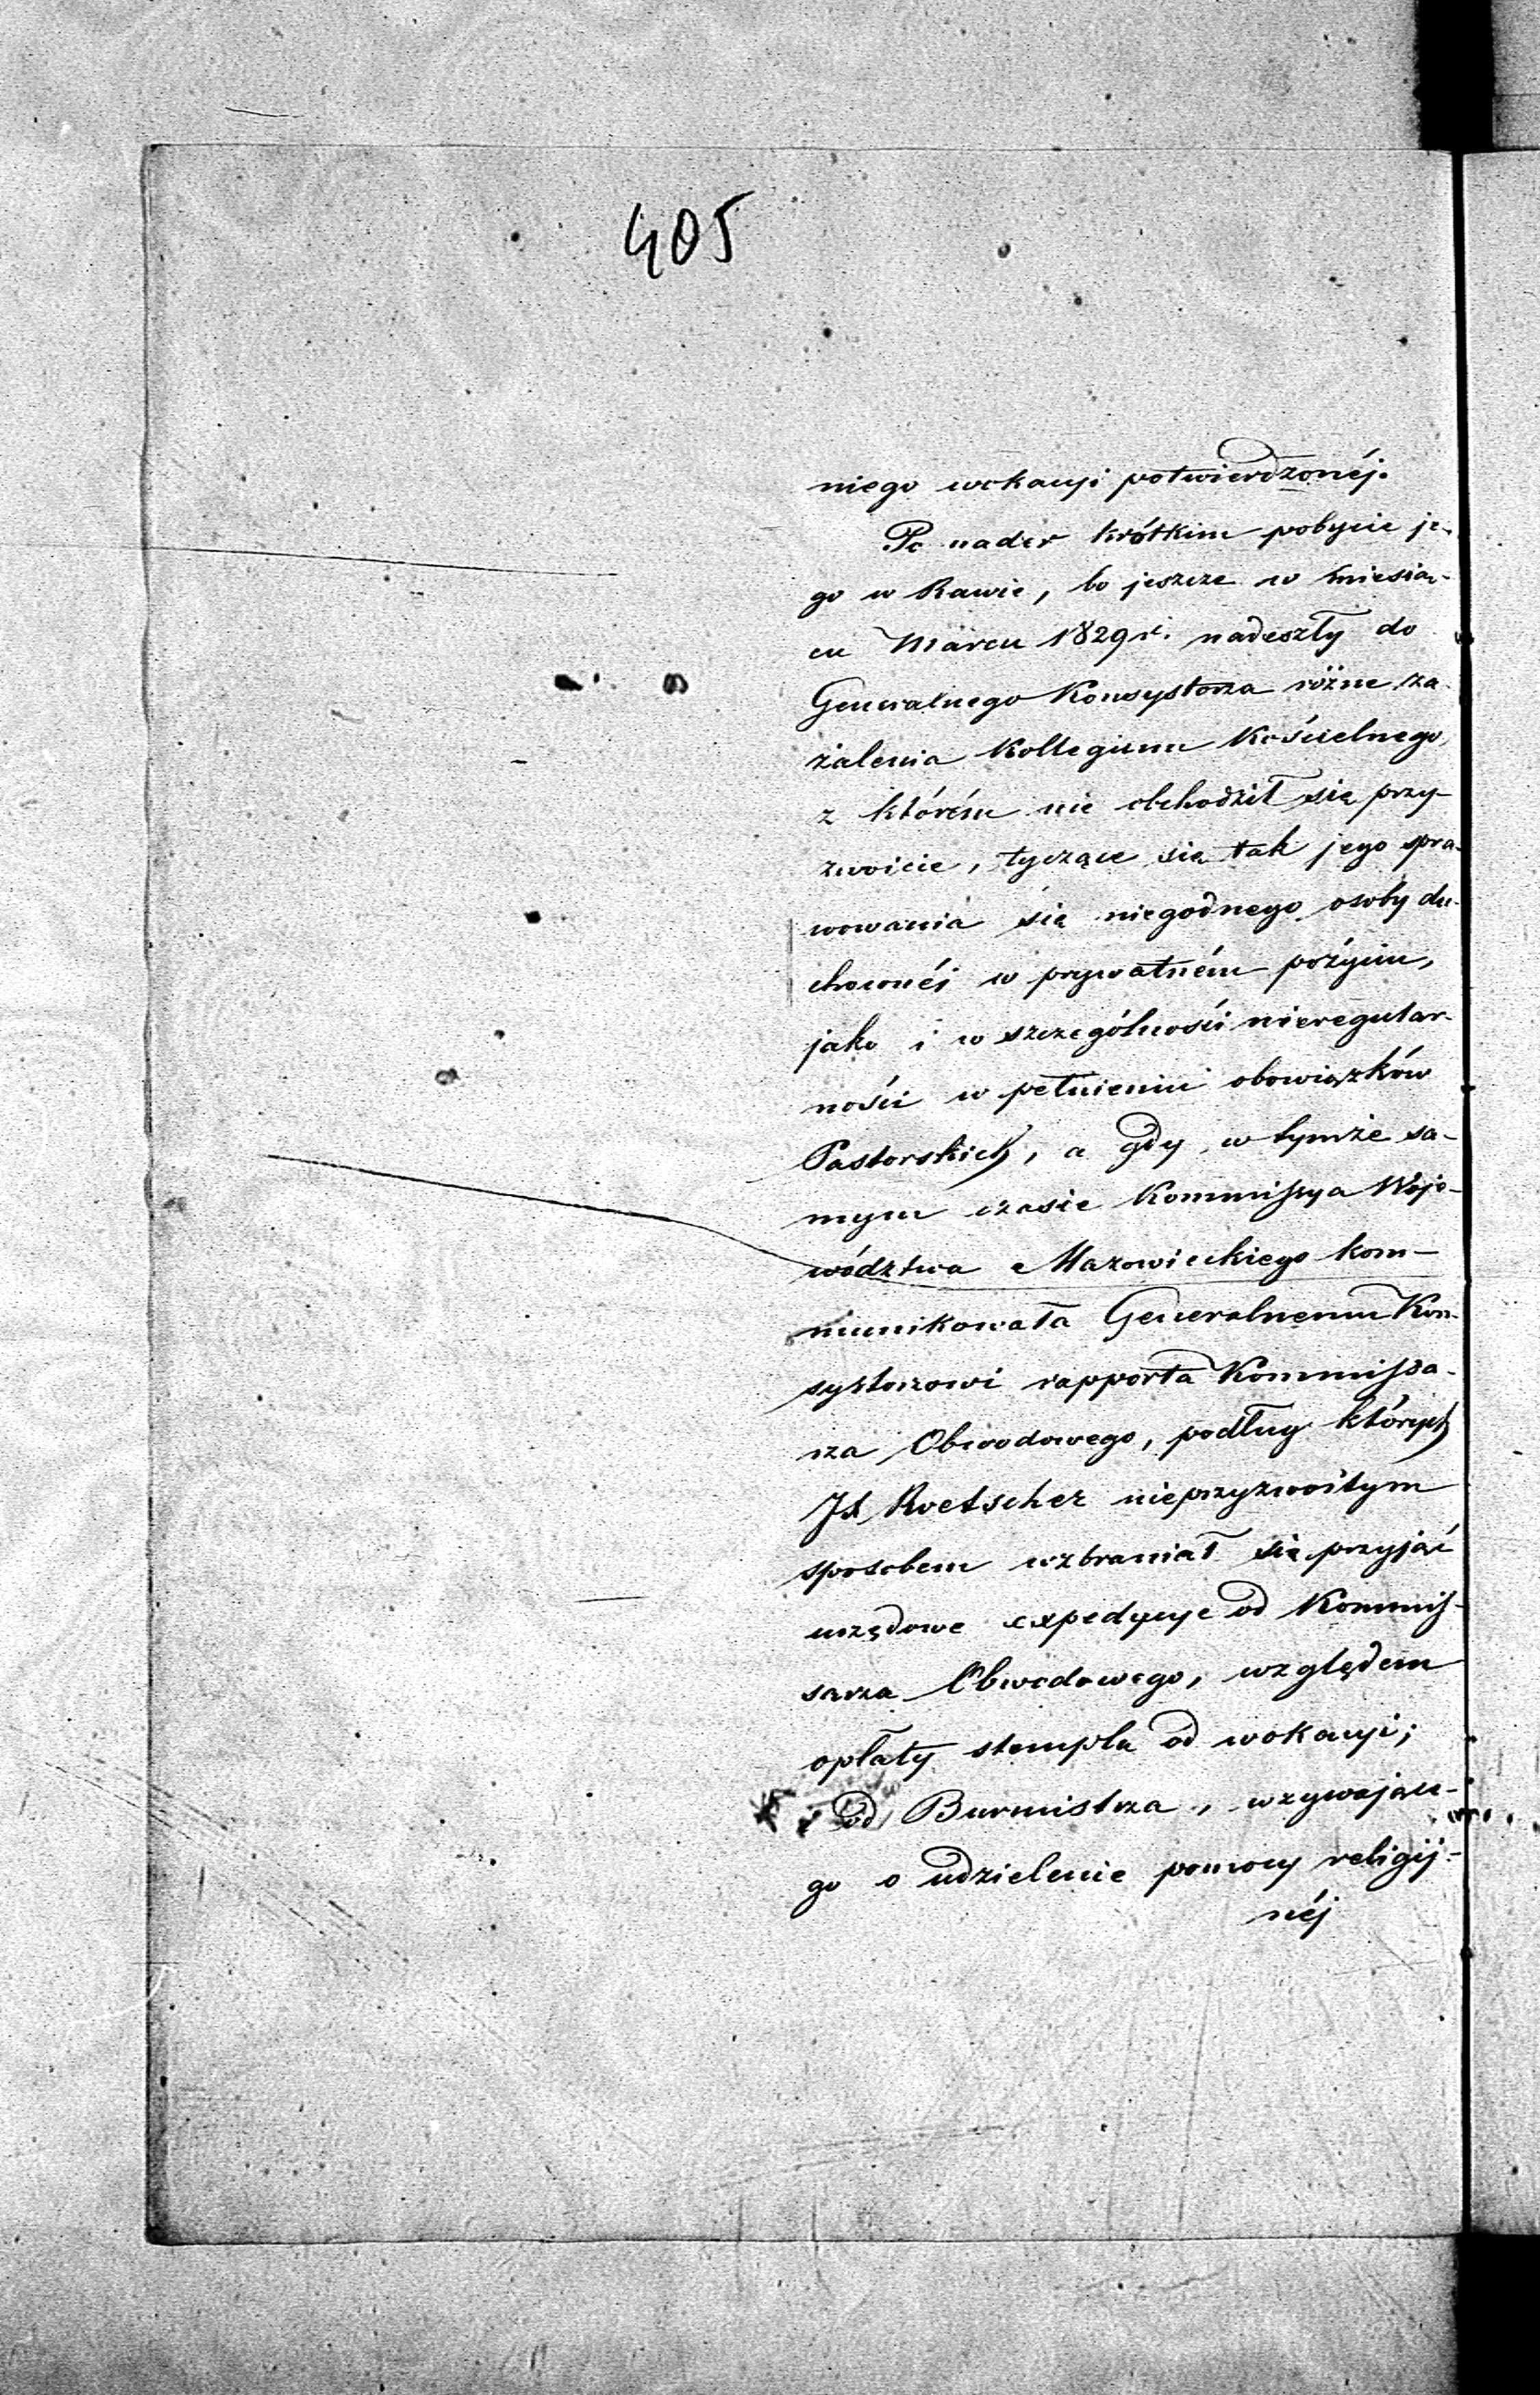 405
niego wokacyi potwierdzonéj.
Po nader krótkim pobycie je-
go w Rawie, bo jeszcze w miesią-
cu Marcu 1829 r. nadeszły do
Generalnego Konsystorza różne za
żalenia Kollegium Kościelnego,
z którém nie obchodził się przy-
zwoicie, tyczące się tak jego spra-
wowania się niegodnego osoby du-
chownéj w prywatném pożyciu,
jako i w szczególności nieregular-
ności w pełnieniu obowiązków
Pastorskich, a gdy w tymże sa-
mym czasie Kommissya Woje-
wództwa Mazowieckiego kom-
munikowała Generalnemu Kon-
systorzowi rapporta Kommissa-
rza Obwodowego, podług których
Roetscher nieprzyzwoitym
sposobem wzbraniał się przyjąć
urzędowe expedycye od Kommis-
sarza Obwodowego, względem
opłaty stempla od wokacyi;
i od Burmistrza, wzywające-
go o udzielenie pomocy religij-
néj